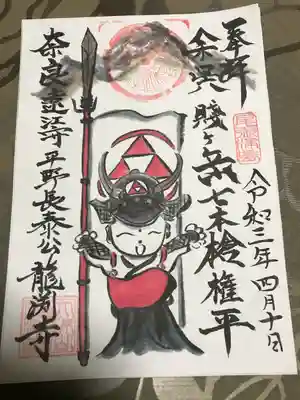 奉拝
余呉 賤ヶ岳七本槍権平
令和三年四月十日
奈良遠江守平野長泰公 龍渕寺